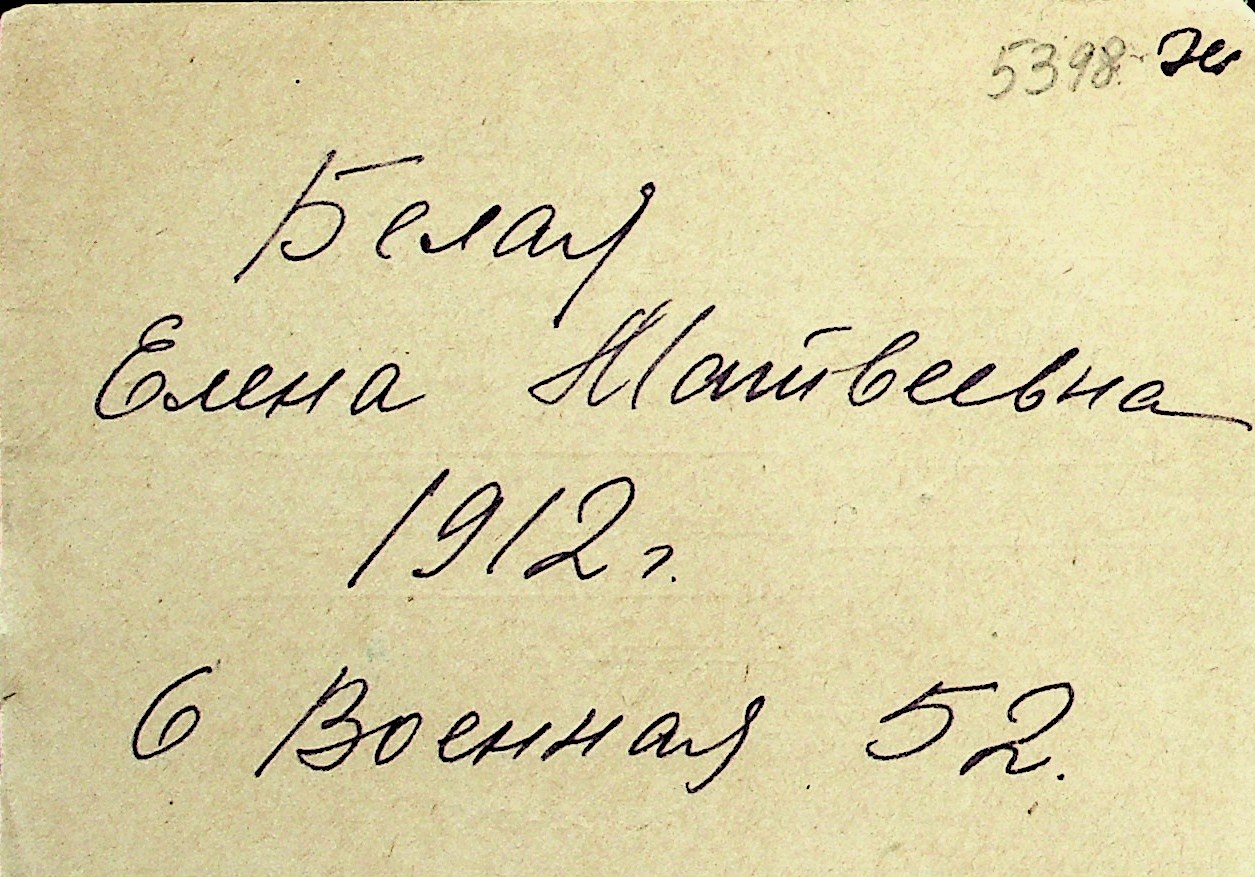 5398
Белая
Елена Матвеевна
1912 г.
6 Военная 52.